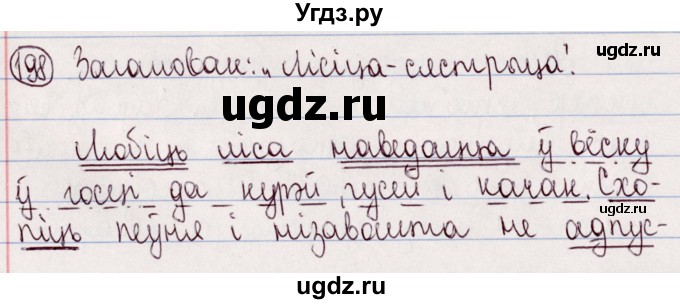 Угдз.ру
198 Загаловак: „Лісіца-сястрыца".
ugdz.ru
ugdz.ru
Любіць ліса наведацца ў вёску
ў госці да курэй, гусей і качак. Схо-
піць пеўня і нізавошта не адпус-
ugdz.ru
ugdz.ru